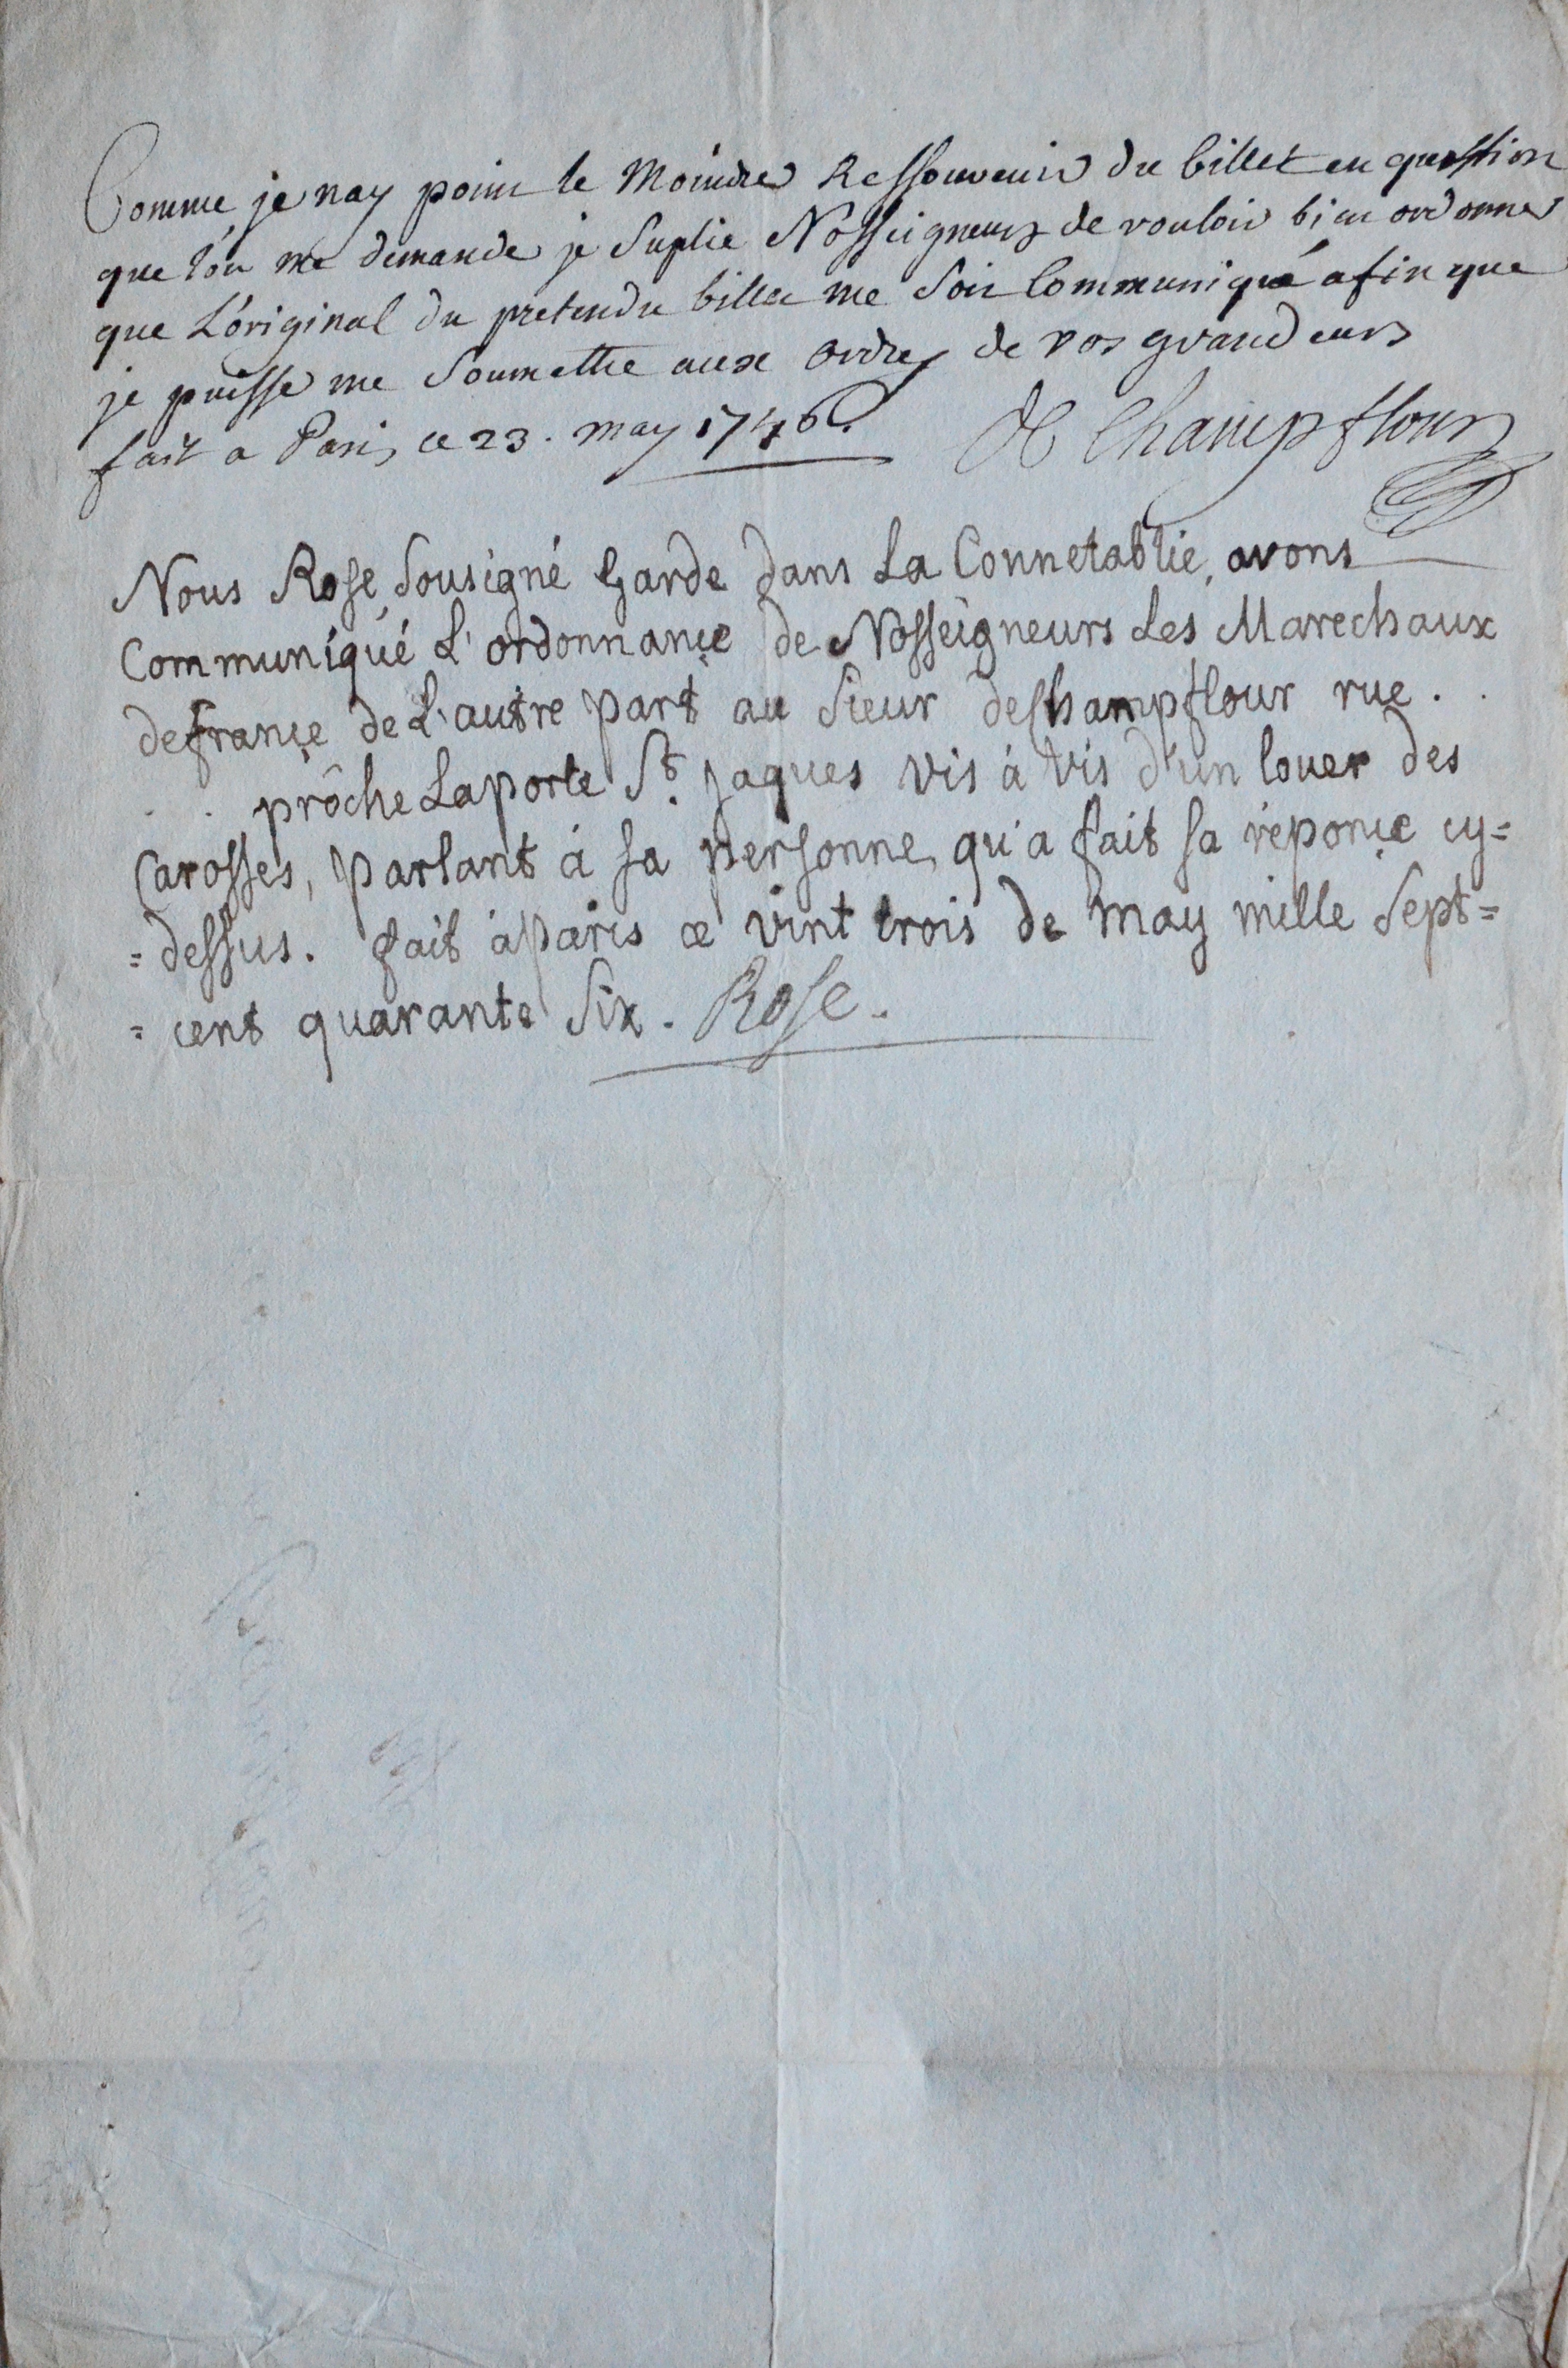 Comme je nay point le Moindre Ressouvenir du billet en question
que l'on me demande je Suplie Nosseigneurs de vouloir bien ordonner
que L'original du pretendu billet me Soit Communiqué afin que
je puisse me Soumettre aux Ordres de vos grandeurs
fait a Paris ce 23. may 1746. De Champflour
Nous Rose Sousigné Garde dans La Connetablie, avons
Communiqué L'ordonnançe de Nosseigneurs Les Marechaux
defrançe de L'autre part au Sieur deChampflour rue . .
. . prôche Laporte St. Jaques vis à vis d'un louer des
Carosses, parlant à sa personne, qu'a fait sa réponçe cy=
=dessus. fait àparis ce vint trois de may mille Sept=
=cent quarante Six. Rose.